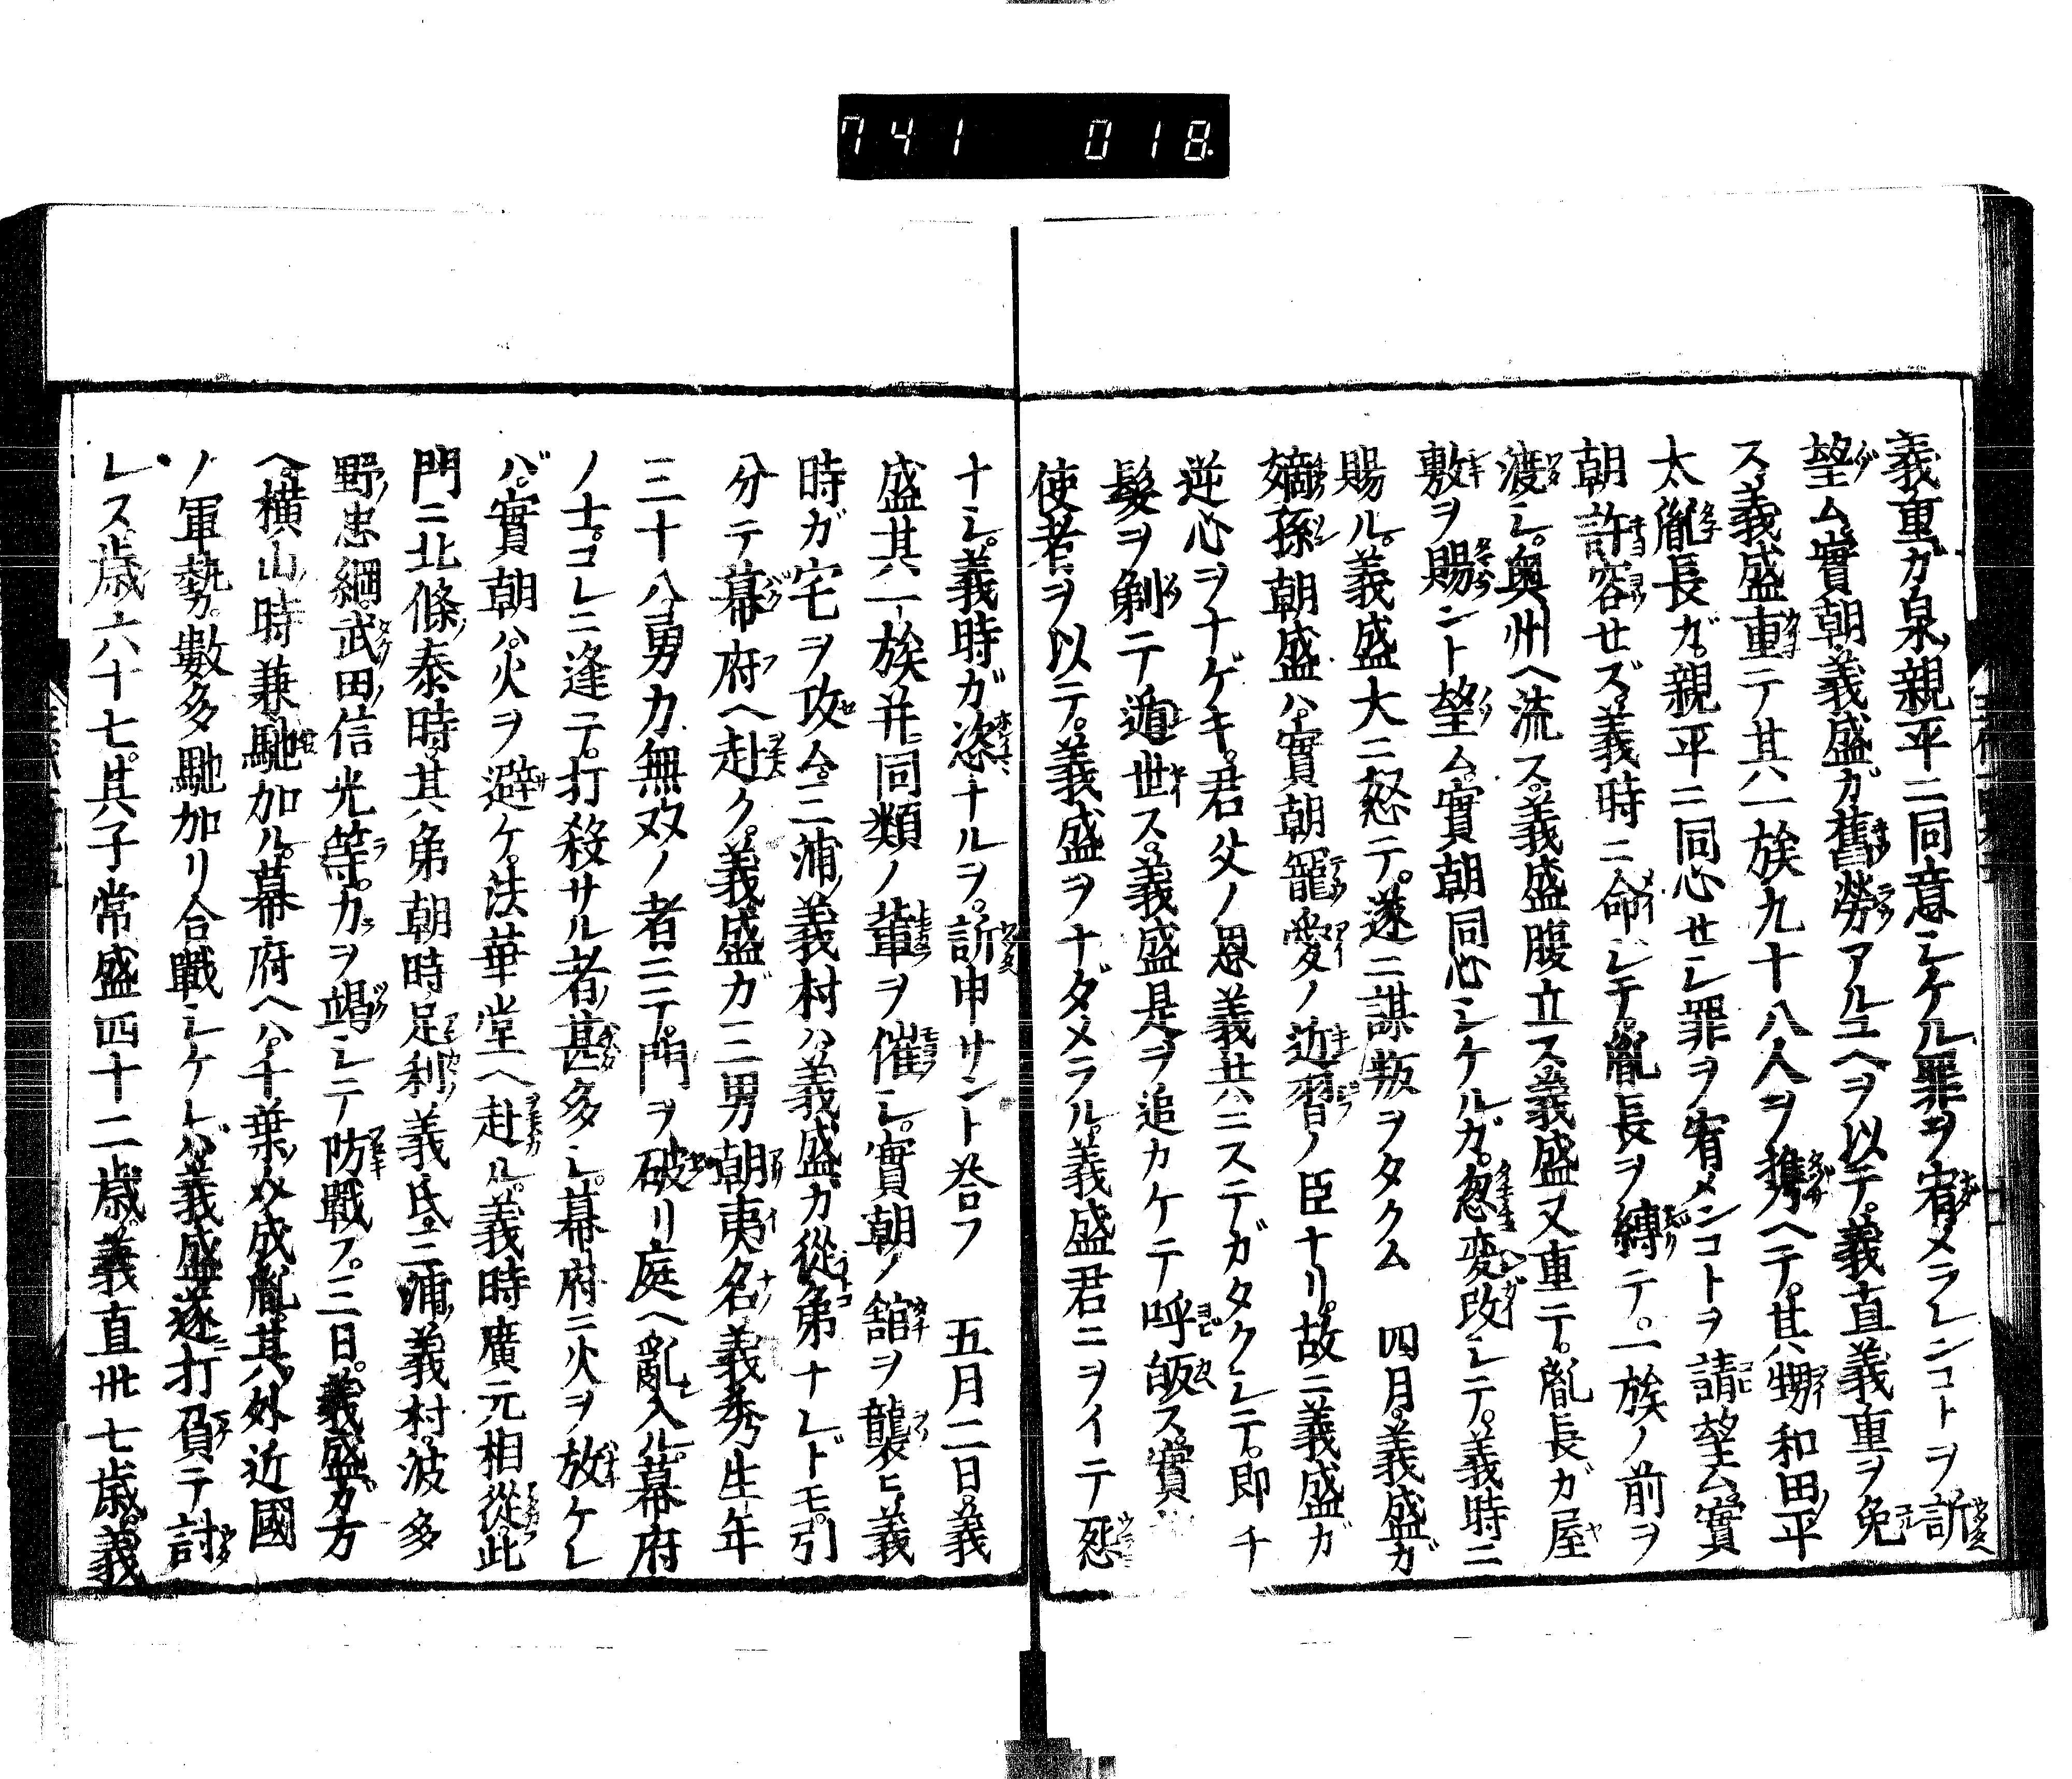 741 018
義重ガ泉親平ニ同意シケル罪ヲ宥メラレンコトヲ訴
望ム實朝義盛ガ舊勞アルユヘヲ以テ。義直義重ヲ免
ス義盛重テ其一族九十八人ヲ携ヘテ。其甥和田平
太胤長ガ。親平ニ同心セシ罪ヲ宥メンコトヲ請望ム實
朝許容セズ義時ニ命ジテ。胤長ヲ縛テ。一族ノ前ヲ
渡シ。奥州ヘ流ス。義盛腹立ス。義盛又重テ。胤長ガ屋
敷ヲ賜ント望ム。實朝同心シケルガ。忽変改シテ。義時ニ
賜ル。義盛大ニ怒テ。遂ニ謀叛ヲタクム 四月。義盛ガ
嫡孫朝盛ハ。實朝寵愛ノ近習ノ臣ナリ。故ニ義盛ガ
逆心ヲナゲキ。君父ノ恩義共ニステガタクシテ。即チ
髮ヲ剃テ遁世ス。義盛是ヲ追カケテ呼皈ス。實
使者ヲ以テ。義盛ヲナダメラル。義盛君ニヲイテ怨
ナシ。義時ガ恣ナルヲ。訴申サント答フ 五月二日。義
盛其一族并同類ノ輩ヲ催シ。實朝ノ舘ヲ襲ヒ義
時ガ宅ヲ攻ム。三浦義村ハ義盛カ從弟ナレドモ。引
分テ幕府ヘ赴ク。義盛ガ三男朝夷名義秀生年
三十八勇力無双ノ者ニテ。門ヲ破リ庭ヘ亂入ル。幕府
ノ士。コレニ逢テ。打殺サル者甚多シ。幕府ニ火ヲ放ケレ
バ。實朝ハ火ヲ避ケ。法華堂ヘ赴ル。義時廣元相從此
門ニ北條泰時。其弟朝時足利義氏。三浦義村。波多
野忠綱。武田信光等。力ヲ竭シテ防戰フ。三日。義盛ガ方
ヘ。横山時兼馳加ル。幕府ヘハ。千葉介成胤。其外近國
ノ軍勢。數多馳加リ合戰シケレバ義盛遂打負テ討
レス歳六十七。其子常盛四十二歳。義直卅七歳。義